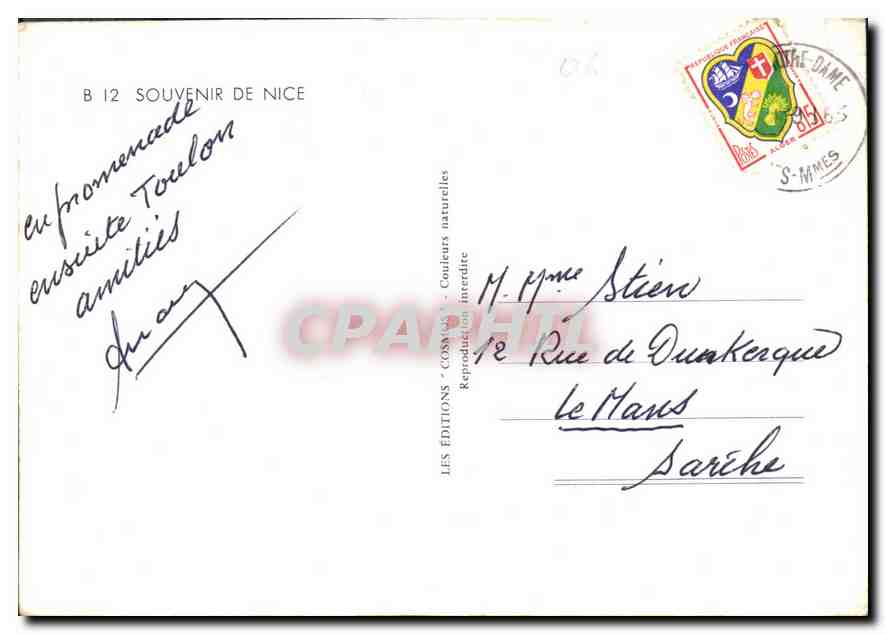 B 12 SOUVENIR DE NICE
en promenade
ensuite Toulon
amitiés
LES ÉDITIONS "COSMOS" - Couleurs naturelles
Reproduction interdite
REPUBLIQUE FRANÇAISE
POSTES
ALGER
0,15
THE-DAME
S-MMES
CPAPHIL
M. Mme Stien
12 Rue de Dunkerque
Le Mans
Sarthe